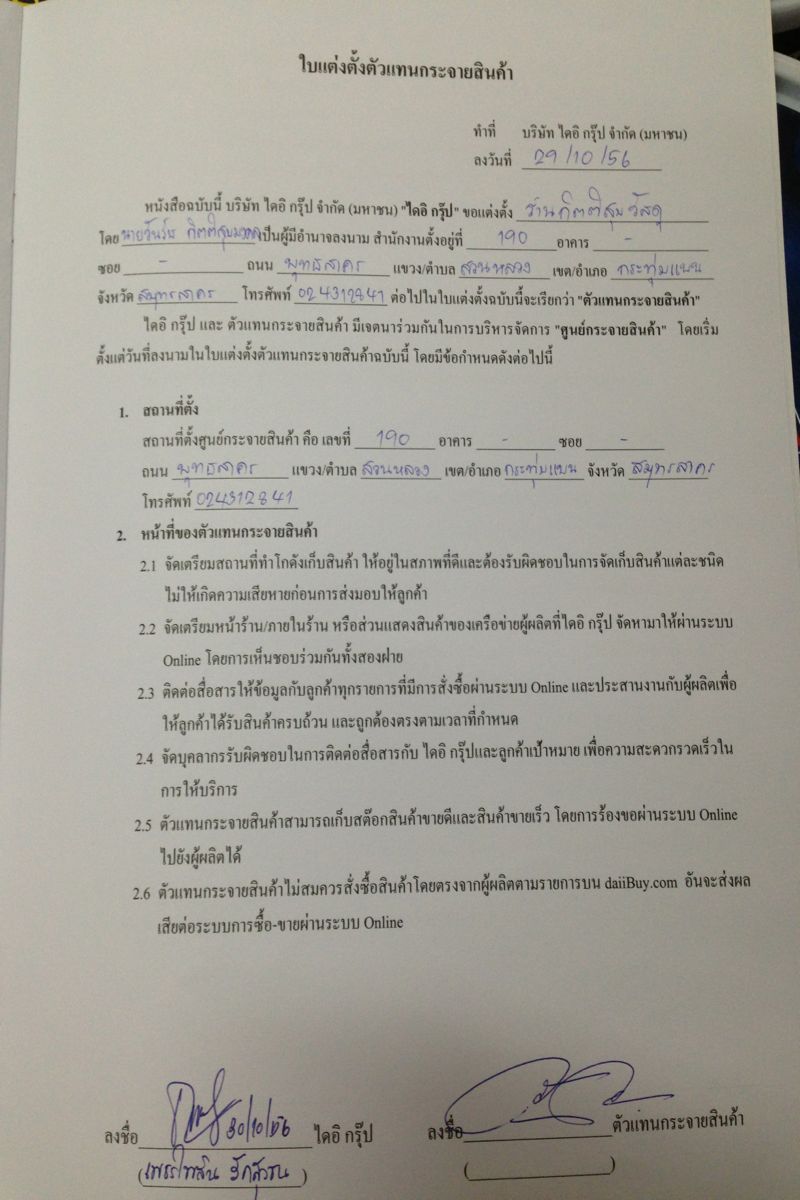 ใบแต่งตั้งตัวแทนกระจายสินค้า
ทำที่ บริษัท ไดอิ กรุ๊ป จำกัด (มหาชน)
ลงวันที่ 29/10/56
หนังสือฉบับนี้ บริษัท ไดอิ กรุ๊ป จำกัด (มหาชน) "ไดอิ กรุ๊ป" ขอแต่งตั้ง ร้านกิตติสุมวัสดุ
โดย เป็นผู้มีอำนาจลงนาม สำนักงานตั้งอยู่ที่ 190 อาคาร -
ซอย - ถนน พุทธสาคร แขวง/ตำบล สวนหลวง เขต/อำเภอ กระทุ่มแบน
จังหวัด สมุทรสาคร โทรศัพท์ 024312841 ต่อไปในใบแต่งตั้งฉบับนี้จะเรียกว่า "ตัวแทนกระจายสินค้า"
ไดอิ กรุ๊ป และ ตัวแทนกระจายสินค้า มีเจตนาร่วมกันในการบริหารจัดการ "ศูนย์กระจายสินค้า" โดยเริ่ม
ตั้งแต่วันที่ลงนามในใบแต่งตั้งตัวแทนกระจายสินค้าฉบับนี้ โดยมีข้อกำหนดดังต่อไปนี้
1. สถานที่ตั้ง
สถานที่ตั้งศูนย์กระจายสินค้า คือ เลขที่ 190 อาคาร - ซอย -
ถนน พุทธสาคร แขวง/ตำบล สวนหลวง เขต/อำเภอ กระทุ่มแบน จังหวัด สมุทรสาคร
โทรศัพท์ 024312841
2. หน้าที่ของตัวแทนกระจายสินค้า
2.1 จัดเตรียมสถานที่ทำโกดังเก็บสินค้า ให้อยู่ในสภาพที่ดีและต้องรับผิดชอบในการจัดเก็บสินค้าแต่ละชนิด
ไม่ให้เกิดความเสียหายก่อนการส่งมอบให้ลูกค้า
2.2 จัดเตรียมหน้าร้าน/ภายในร้าน หรือส่วนแสดงสินค้าของเครือข่ายผู้ผลิตที่ไดอิ กรุ๊ป จัดหามาให้ผ่านระบบ
Online โดยการเห็นชอบร่วมกันทั้งสองฝ่าย
2.3 ติดต่อสื่อสารให้ข้อมูลกับลูกค้าทุกรายการที่มีการสั่งซื้อผ่านระบบ Online และประสานงานกับผู้ผลิตเพื่อ
ให้ลูกค้าได้รับสินค้าครบถ้วน และถูกต้องตรงตามเวลาที่กำหนด
2.4 จัดบุคลากรรับผิดชอบในการติดต่อสื่อสารกับ ไดอิ กรุ๊ปและลูกค้าเป้าหมาย เพื่อความสะดวกรวดเร็วใน
การให้บริการ
2.5 ตัวแทนกระจายสินค้าสามารถเก็บสต๊อกสินค้าขายดีและสินค้าขายเร็ว โดยการร้องขอผ่านระบบ Online
ไปยังผู้ผลิตได้
2.6 ตัวแทนกระจายสินค้าไม่สมควรสั่งซื้อสินค้าโดยตรงจากผู้ผลิตตามรายการบน daiiBuy.com อันจะส่งผล
เสียต่อระบบการซื้อ-ขายผ่านระบบ Online
ลงชื่อ 30/10/56 ไดอิ กรุ๊ป
ลงชื่อ ตัวแทนกระจายสินค้า